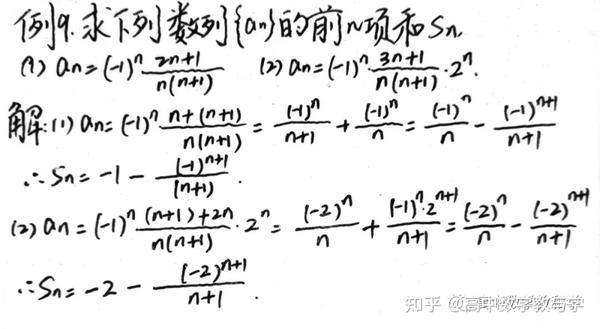 例9.求下列数列{an}的前n项和Sn
(1) an=(-1)^n (2n+1)/(n(n+1))  (2) an=(-1)^n (3n+1)/(n(n+1))·2^n.
解:(1) an=(-1)^n (n+(n+1))/(n(n+1)) = (-1)^n/(n+1) + (-1)^n/n = (-1)^n/n - (-1)^(n+1)/(n+1)
∴Sn=-1-(-1)^(n+1)/(n+1).
(2) an=(-1)^n ((n+1)+2n)/(n(n+1))·2^n = (-2)^n/n + (-1)^n·2^(n+1)/(n+1) = (-2)^n/n - (-2)^(n+1)/(n+1)
∴Sn=-2-(-2)^(n+1)/(n+1).
知乎 @高中数学教与学